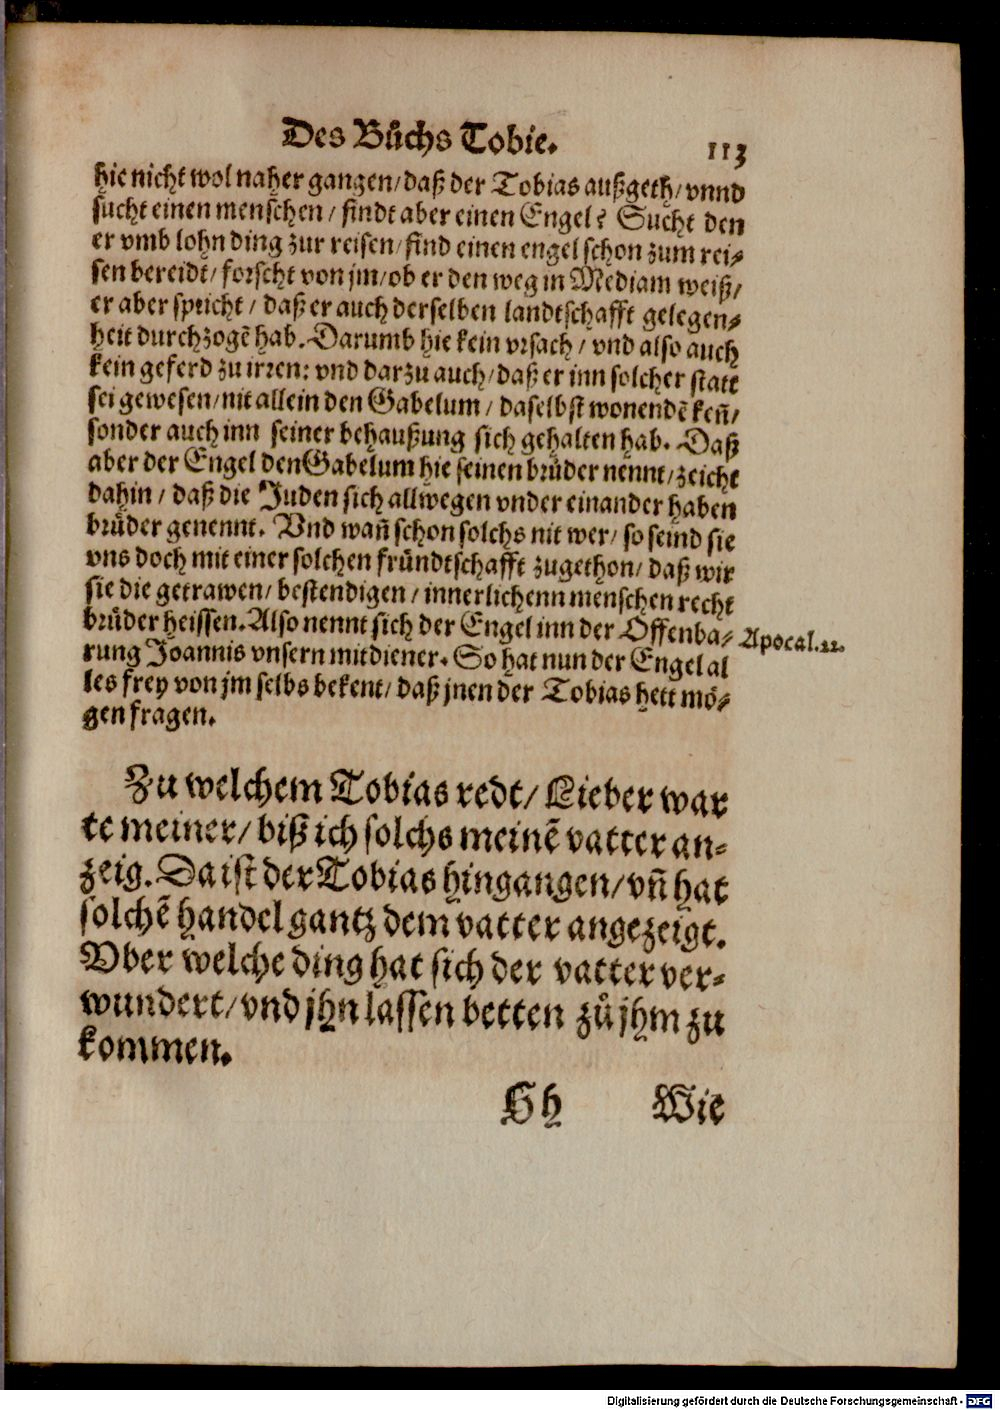 Des Bůchs Tobie.
113
hie nicht wol naher gangen/daß der Tobias außgeth/vnnd
sucht einen menschen/findt aber einen Engel? Sucht den
er vmb lohn ding zur reisen/find einen engel schon zum rei⸗
sen bereidt/forscht von jm/ob er den weg in Mediam weiß/
er aber spricht/daß er auch derselben landtschafft gelegen⸗
heit durchzogē hab. Darumb hie kein vrsach/vnd also auch
kein geferd zu irren: vnd darzu auch/daß er inn solcher statt
sei gewesen/nit allein den Gabelum/daselbst wonendē keñ/
sonder auch inn seiner behaußung sich gehalten hab. Daß
aber der Engel den Gabelum hie seinen brůder nennt/zeicht
dahin/daß die Juden sich allwegen vnder einander haben
brůder genennt. Vnd wañ schon solchs nit wer/so seind sie
vns doch mit einer solchen fründtschafft zugethon/daß wir
sie die getrawen/bestendigen/innerlichenn menschen recht
brůder heissen. Also nennt sich der Engel inn der Offenba⸗
Apocal. 22.
rung Joannis vnsern mitdiener. So hat nun der Engel al
les frey von jm selbs bekent/daß jnen der Tobias hett mö⸗
gen fragen.
Zu welchem Tobias redt/Lieber war
te meiner/biß ich solchs meinē vatter an⸗
zeig. Da ist der Tobias hingangen/vñ hat
solchē handel gantz dem vatter angezeigt.
Vber welche ding hat sich der vatter ver⸗
wundert/vnd jhn lassen betten zů jhm zu
kommen.
Hh
Wie
Digitalisierung gefördert durch die Deutsche Forschungsgemeinschaft - DFG